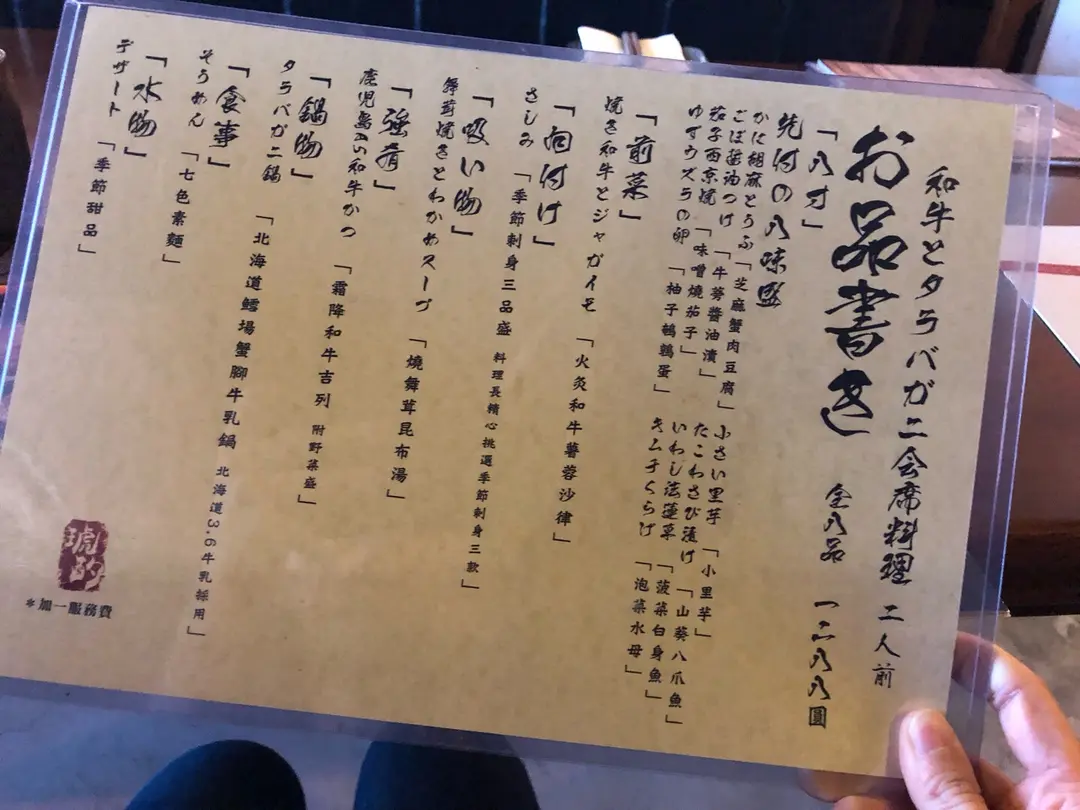 和牛とタラバガニ会席料理 二人前
お品書き 全八品 一二八八圓
「八寸」
先付の八味盛
かに胡麻とうふ「芝麻蟹肉豆腐」
ごぼ醤油つけ「牛蒡醬油漬」
茄子西京焼「味噌燒茄子」
ゆずウズラの卵「柚子鵪鶉蛋」
小さい里芋「小里芋」
たこわさび漬け「山葵八爪魚」
いわし法蓮草「菠菜白身魚」
キムチくらげ「泡菜水母」
「前菜」
焼き和牛とジャガイモ「火炙和牛薯蓉沙律」
「向付け」
さしみ「季節刺身三品盛 料理長精心挑選季節刺身三款」
「吸い物」
舞茸焼きとわかめスープ「燒舞茸昆布湯」
「強肴」
鹿児島A5和牛かつ「霜降和牛吉列 附野菜盛」
「鍋物」
タラバガニ鍋「北海道鱈場蟹腳牛乳鍋 北海道3.6牛乳採用」
「食事」
そうめん「七色素麵」
「水物」
デザート「季節甜品」
琥酌
*加一服務費